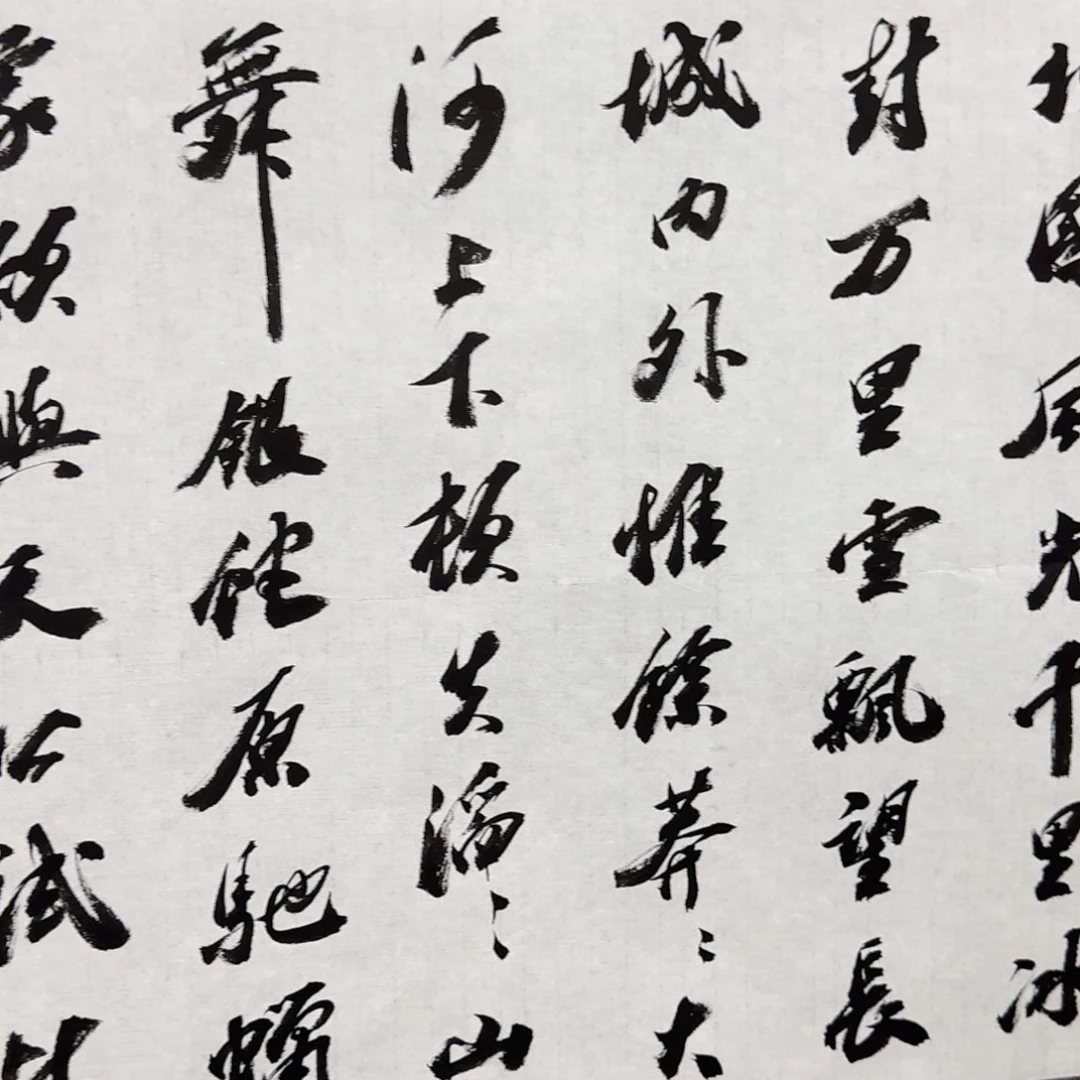 北國風光千里冰
封万里雪飄望長
城内外惟餘莽〻大
河上下頓失滔〻山
舞銀蛇原馳蠟
象欲與天公試比